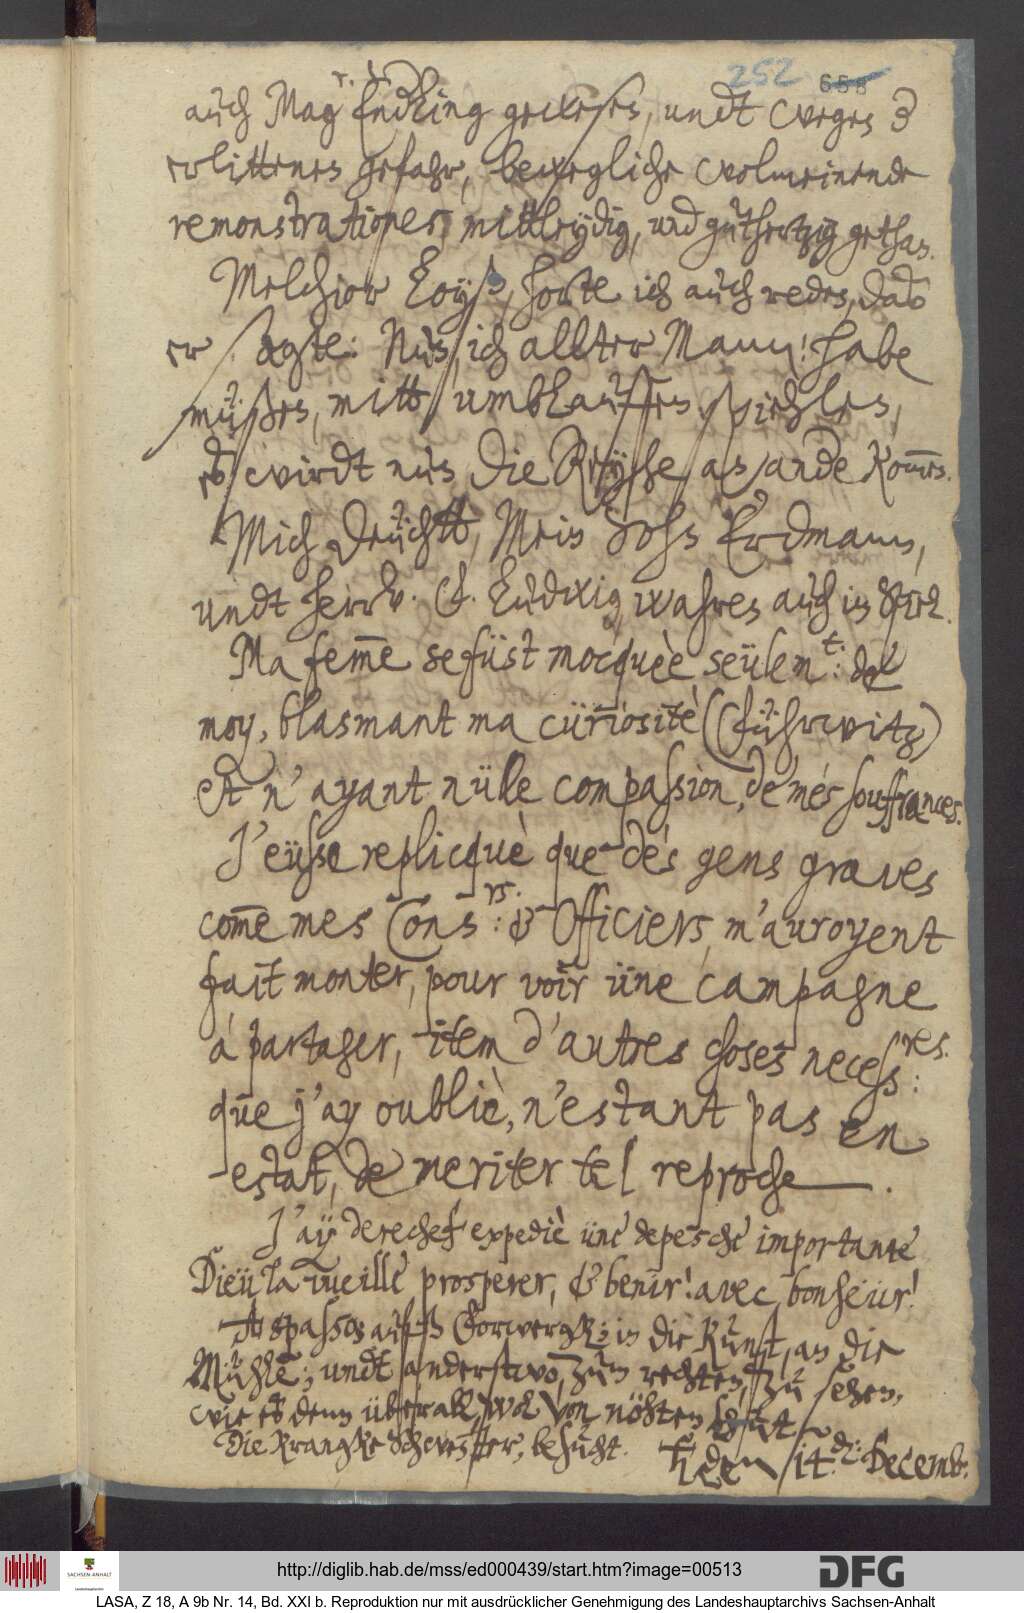 252 658
auch Magr. Endling gewesen, undt wegen
erlittenen gefahr, bewegliche wolmeinende
remonstrationes, mittleydig, und guthertzig gethan.
Melchior Loyß, hörte ich auch reden, daß
er sagte: Nun, ich allter Mann! habe
müßen, mitt umblauffen, spiehlen,
es wirdt nun die Reyhe, an andre kommen.
Mich deucht, Mein Sohn Erdmann,
undt Herr C. Ludwig, wahren auch im Spiel.
Ma femme se füst mocquèe seülemt: de
moy, blasmant ma cüriositè (führwitz)
et n'ayant nülle compassion, de mes souffrances.
J'eüsse replicquè que des gens graves
comme mes Consrs: & Officiers, m'auroyent
fait monter, pour voir üne campagne
a partager, item d'autres choses necessres:
que j'ay oubliè, n'estant pas en
estat, de meriter tel reproche.
J'ay derechef expediè üne depesche importante
Dieü la vueille prosperer, & benir! avec bonheür!
A spasso aufs Vorwergk; in die Kunst, an die
Mühle; undt anderstwo, zum rechten, zu sehen,
wie es denn überall, wol von nöhten thut
Die Krangke Schwester, besucht.
Eodem 14. d: Decemb:
http://diglib.hab.de/mss/ed000439/start.htm?image=00513
SACHSEN-ANHALT
DFG
LASA, Z 18, A 9b Nr. 14, Bd. XXI b. Reproduktion nur mit ausdrücklicher Genehmigung des Landeshauptarchivs Sachsen-Anhalt